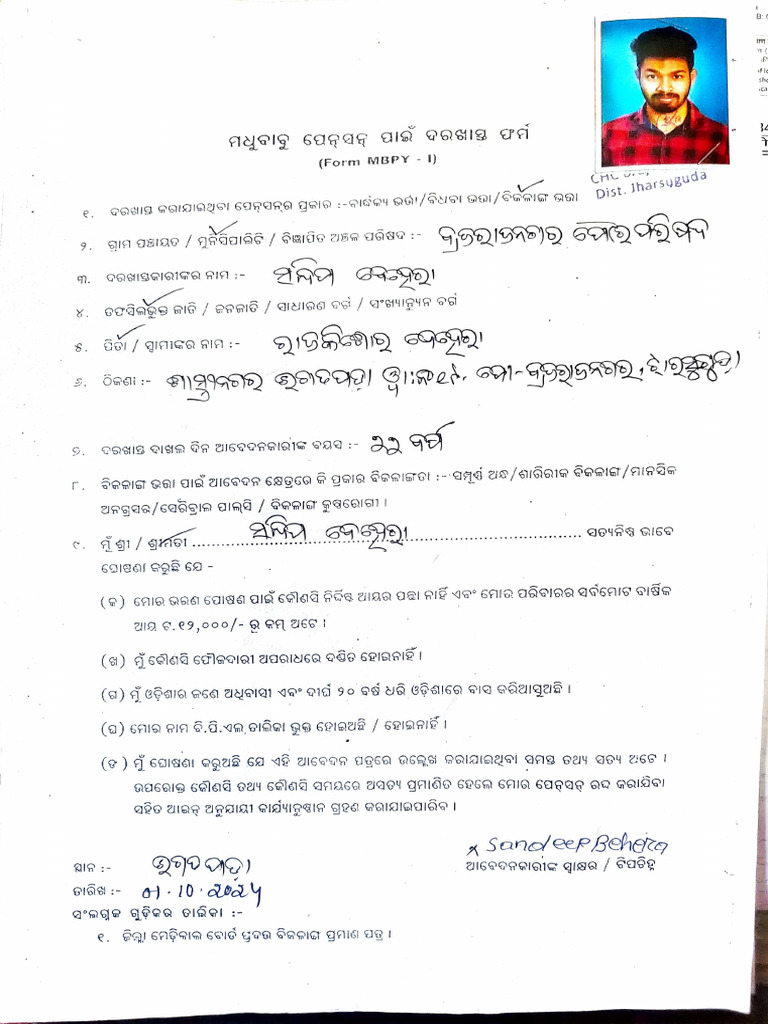 ମଧୁବାବୁ ପେନ୍‌ସନ୍ ପାଇଁ ଦରଖାସ୍ତ ଫର୍ମ
(Form MBPY - I)
Dist. Jharsuguda
୧. ଦରଖାସ୍ତ କରାଯାଇଥିବା ପେନ୍‌ସନ୍‌ର ପ୍ରକାର :-ବାର୍ଦ୍ଧକ୍ୟ ଭତ୍ତା/ବିଧବା ଭତ୍ତା/ବିକଳାଙ୍ଗ ଭତ୍ତା
୨. ଗ୍ରାମ ପଞ୍ଚାୟତ / ମୁନିସିପାଲିଟି / ବିଜ୍ଞାପିତ ଅଞ୍ଚଳ ପରିଷଦ :- ବ୍ରଜରାଜନଗର ପୌରପରିଷଦ
୩. ଦରଖାସ୍ତକାରୀଙ୍କର ନାମ :- ସନ୍ଦିପ ବେହେରା
୪. ତଫସିଲଭୁକ୍ତ ଜାତି / ଜନଜାତି / ସାଧାରଣ ବର୍ଗ / ସଂଖ୍ୟାନ୍ୟୁନ ବର୍ଗ
୫. ପିତା / ସ୍ୱାମୀଙ୍କର ନାମ :- ରାଜକିଶୋର ବେହେରା
୬. ଠିକଣା :- ଲମ୍ତିବ୍ରଜରାଜନଗର, ଝାରସୁଗୁଡ଼ା
୭. ଦରଖାସ୍ତ ଦାଖଲ ଦିନ ଆବେଦନକାରୀଙ୍କ ବୟସ :- ୨୨ ବର୍ଷ
୮. ବିକଳାଙ୍ଗ ଭତ୍ତା ପାଇଁ ଆବେଦନ କ୍ଷେତ୍ରରେ କି ପ୍ରକାର ବିକଳାଙ୍ଗତା :- ସମ୍ପୂର୍ଣ୍ଣ ଅନ୍ଧ/ଶାରିରୀକ ବିକଳାଙ୍ଗ/ମାନସିକ
ଅନଗ୍ରସର/ସେରିବ୍ରାଲ ପାଲ୍‌ସି / ବିକଳାଙ୍ଗ କୁଷ୍ଠରୋଗୀ ।
୯. ମୁଁ ଶ୍ରୀ / ଶ୍ରୀମତୀ ସନ୍ଦିପ ବେହେରା ସତ୍ୟନିଷ୍ଠ ଭାବେ
ଘୋଷଣା କରୁଛି ଯେ -
(କ) ମୋର ଭରଣ ପୋଷଣ ପାଇଁ କୌଣସି ନିର୍ଦ୍ଦିଷ୍ଟ ଆୟର ପନ୍ଥା ନାହିଁ ଏବଂ ମୋର ପରିବାରର ସର୍ବମୋଟ ବାର୍ଷିକ
ଆୟ ଟ.୧୨,୦୦୦/- ରୁ କମ୍ ଅଟେ ।
(ଖ) ମୁଁ କୌଣସି ଫୌଜଦାରୀ ଅପରାଧରେ ଦଣ୍ଡିତ ହୋଇନାହିଁ ।
(ଗ) ମୁଁ ଓଡ଼ିଶାର ଜଣେ ଅଧିବାସୀ ଏବଂ ଦୀର୍ଘ ୨୦ ବର୍ଷ ଧରି ଓଡ଼ିଶାରେ ବାସ କରିଆସୁଅଛି ।
(ଘ) ମୋର ନାମ ବି.ପି.ଏଲ ତାଲିକା ଭୁକ୍ତ ହୋଇଅଛି / ହୋଇନାହିଁ ।
(ଙ) ମୁଁ ଘୋଷଣା କରୁଅଛି ଯେ ଏହି ଆବେଦନ ପତ୍ରରେ ଉଲ୍ଲେଖ କରାଯାଇଥିବା ସମସ୍ତ ତଥ୍ୟ ସତ୍ୟ ଅଟେ ।
ଉପରୋକ୍ତ କୌଣସି ତଥ୍ୟ କୌଣସି ସମୟରେ ଅସତ୍ୟ ପ୍ରମାଣିତ ହେଲେ ମୋର ପେନ୍‌ସନ୍ ରଦ୍ଦ କରାଯିବା
ସହିତ ଆଇନ୍ ଅନୁଯାୟୀ କାର୍ଯ୍ୟାନୁଷ୍ଠାନ ଗ୍ରହଣ କରାଯାଇପାରିବ ।
Sandeep Behera
ସ୍ଥାନ :-
ଆବେଦନକାରୀଙ୍କ ସ୍ୱାକ୍ଷର / ଟିପଚିହ୍ନ
ତାରିଖ :- 01.10.2024
ସଂଲଗ୍ନକ ଗୁଡ଼ିକର ତାଲିକା :-
୧. ଜିଲ୍ଲା ମେଡ଼ିକାଲ ବୋର୍ଡ ପ୍ରଦତ୍ତ ବିକଳାଙ୍ଗ ପ୍ରମାଣ ପତ୍ର ।